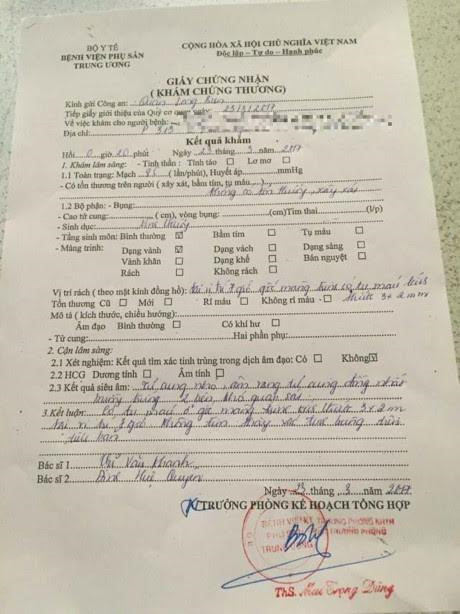 BỘ Y TẾ
BỆNH VIỆN PHỤ SẢN
TRUNG ƯƠNG
CỘNG HÒA XÃ HỘI CHỦ NGHĨA VIỆT NAM
Độc lập - Tự do - Hạnh phúc
GIẤY CHỨNG NHẬN
( KHÁM CHỨNG THƯƠNG)
Kính gửi Công an: Quận Long Biên
Tiếp giấy giới thiệu của Quý cơ quan ngày 23/3/2017
Về việc khám cho người bệnh:
Địa chỉ: P 313
Kết quả khám
Hồi 0 giờ 20 phút Ngày 23 tháng 3 năm 2017
1. Khám lâm sàng: - Tinh thần: Tỉnh táo Lơ mơ
1.1 Toàn trạng: Mạch 85 (lần/phút), Huyết áp mmHg
- Có tổn thương trên người ( xây xát, bầm tím, tụ máu )
Không có tổn thương, xây xát
1.2 Bộ phận: - Bụng:
- Cao tử cung: ( cm), vòng bụng: (cm)Tim thai (l/p)
- Sinh dục:
- Tầng sinh môn: Bình thường Bầm tím Tụ máu
- Màng trinh: Dạng vành Dạng vách Dạng sàng
Vành khăn Dạng khế Bán nguyệt
Rách Không rách
Vị trí rách ( theo mặt kính đồng hồ): tại vị trí 3 giờ gốc màng trinh có tụ máu kích
thước 3x2mm
Tổn thương Cũ Mới Rỉ máu Không rỉ máu
Mô tả ( kích thước, chiều hướng):
Âm đạo Bình thường Có khí hư
- Tử cung: Hai phần phụ:
2. Cận lâm sàng:
2.1 Xét nghiệm: Kết quả tìm xác tinh trùng trong dịch âm đạo: Có Không
2.2 HCG Dương tính Âm tính
2.3 Kết quả siêu âm: Tử cung niêm mạc tử cung đồng nhất
buồng trứng 2 bên khó quan sát
3.Kết luận: Có tụ máu ở gốc màng trinh kích thước 3x2m
tại vị trí 3 giờ Không tìm thấy xác tinh trùng trên
tiêu bản
Bác sĩ 1 Vũ Văn Khanh
Bác sĩ 2 Đinh Huệ Quyên
Ngày 23 tháng 3 năm 2017
TRƯỞNG PHÒNG KẾ HOẠCH TỔNG HỢP
BỆNH VIỆN
PHỤ SẢN
TRUNG ƯƠNG
ThS. Mai Trọng Dũng